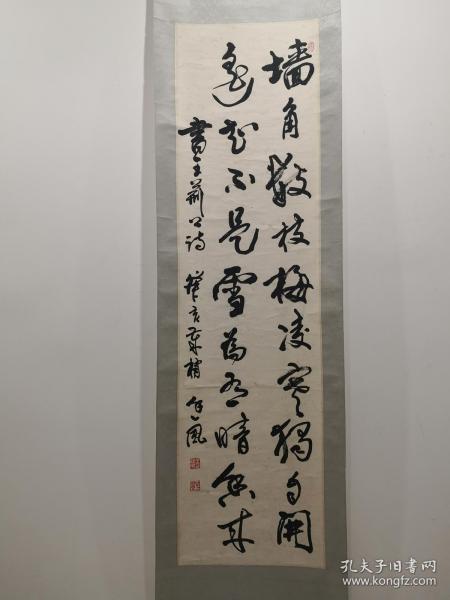 墙角数枝梅凌寒独自开
遥知不是雪为有暗香来
书王荆公诗 癸亥
孔夫子旧书网
www.kongfz.com